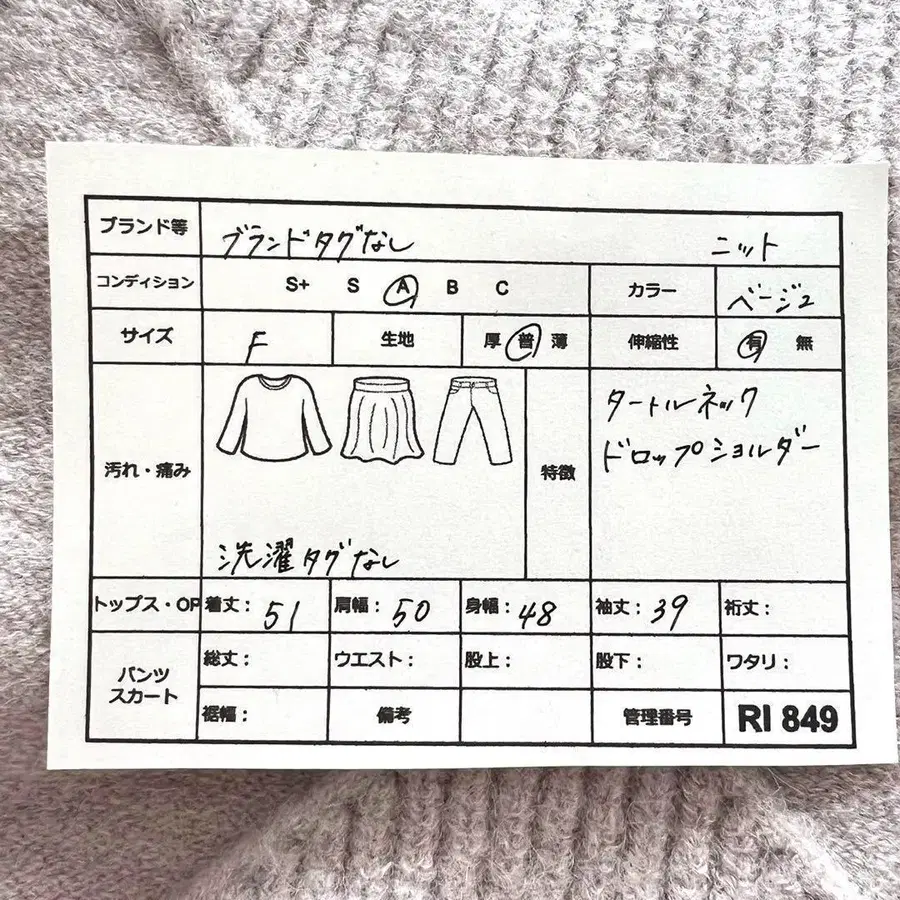 ブランド等 ブランドタグなし ニット
コンディション S+ S A B C カラー ベージュ
サイズ F 生地 厚 普 薄 伸縮性 有 無
汚れ・痛み 特徴 タートルネック
ドロップショルダー
洗濯タグなし
トップス・OP 着丈: 51 肩幅: 50 身幅: 48 袖丈: 39 裄丈:
パンツ
スカート
総丈: ウエスト: 股上: 股下: ワタリ:
裾幅: 備考 管理番号 RI 849